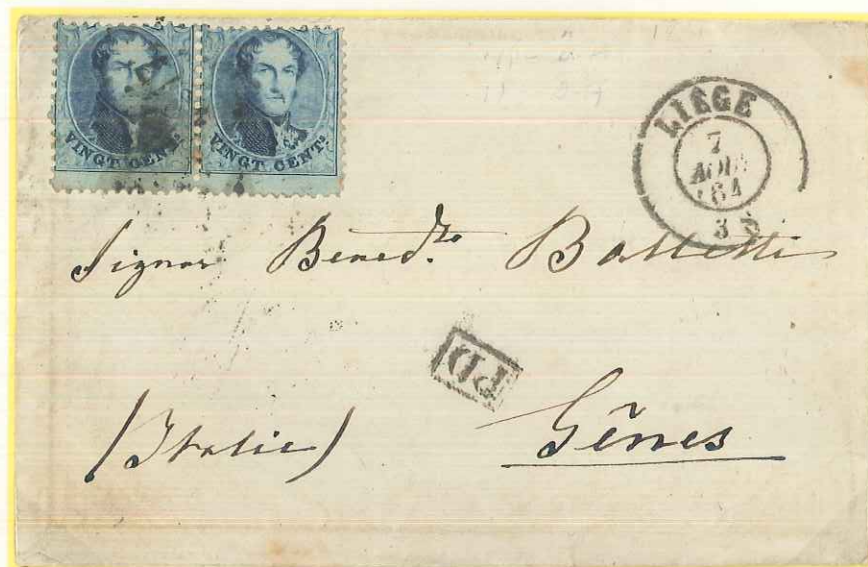 VINGT CENTS VINGT CENTS
LIÈGE
7
AOUT
64
3 S
Signor Bened.to
PD
(Italie) Gênes